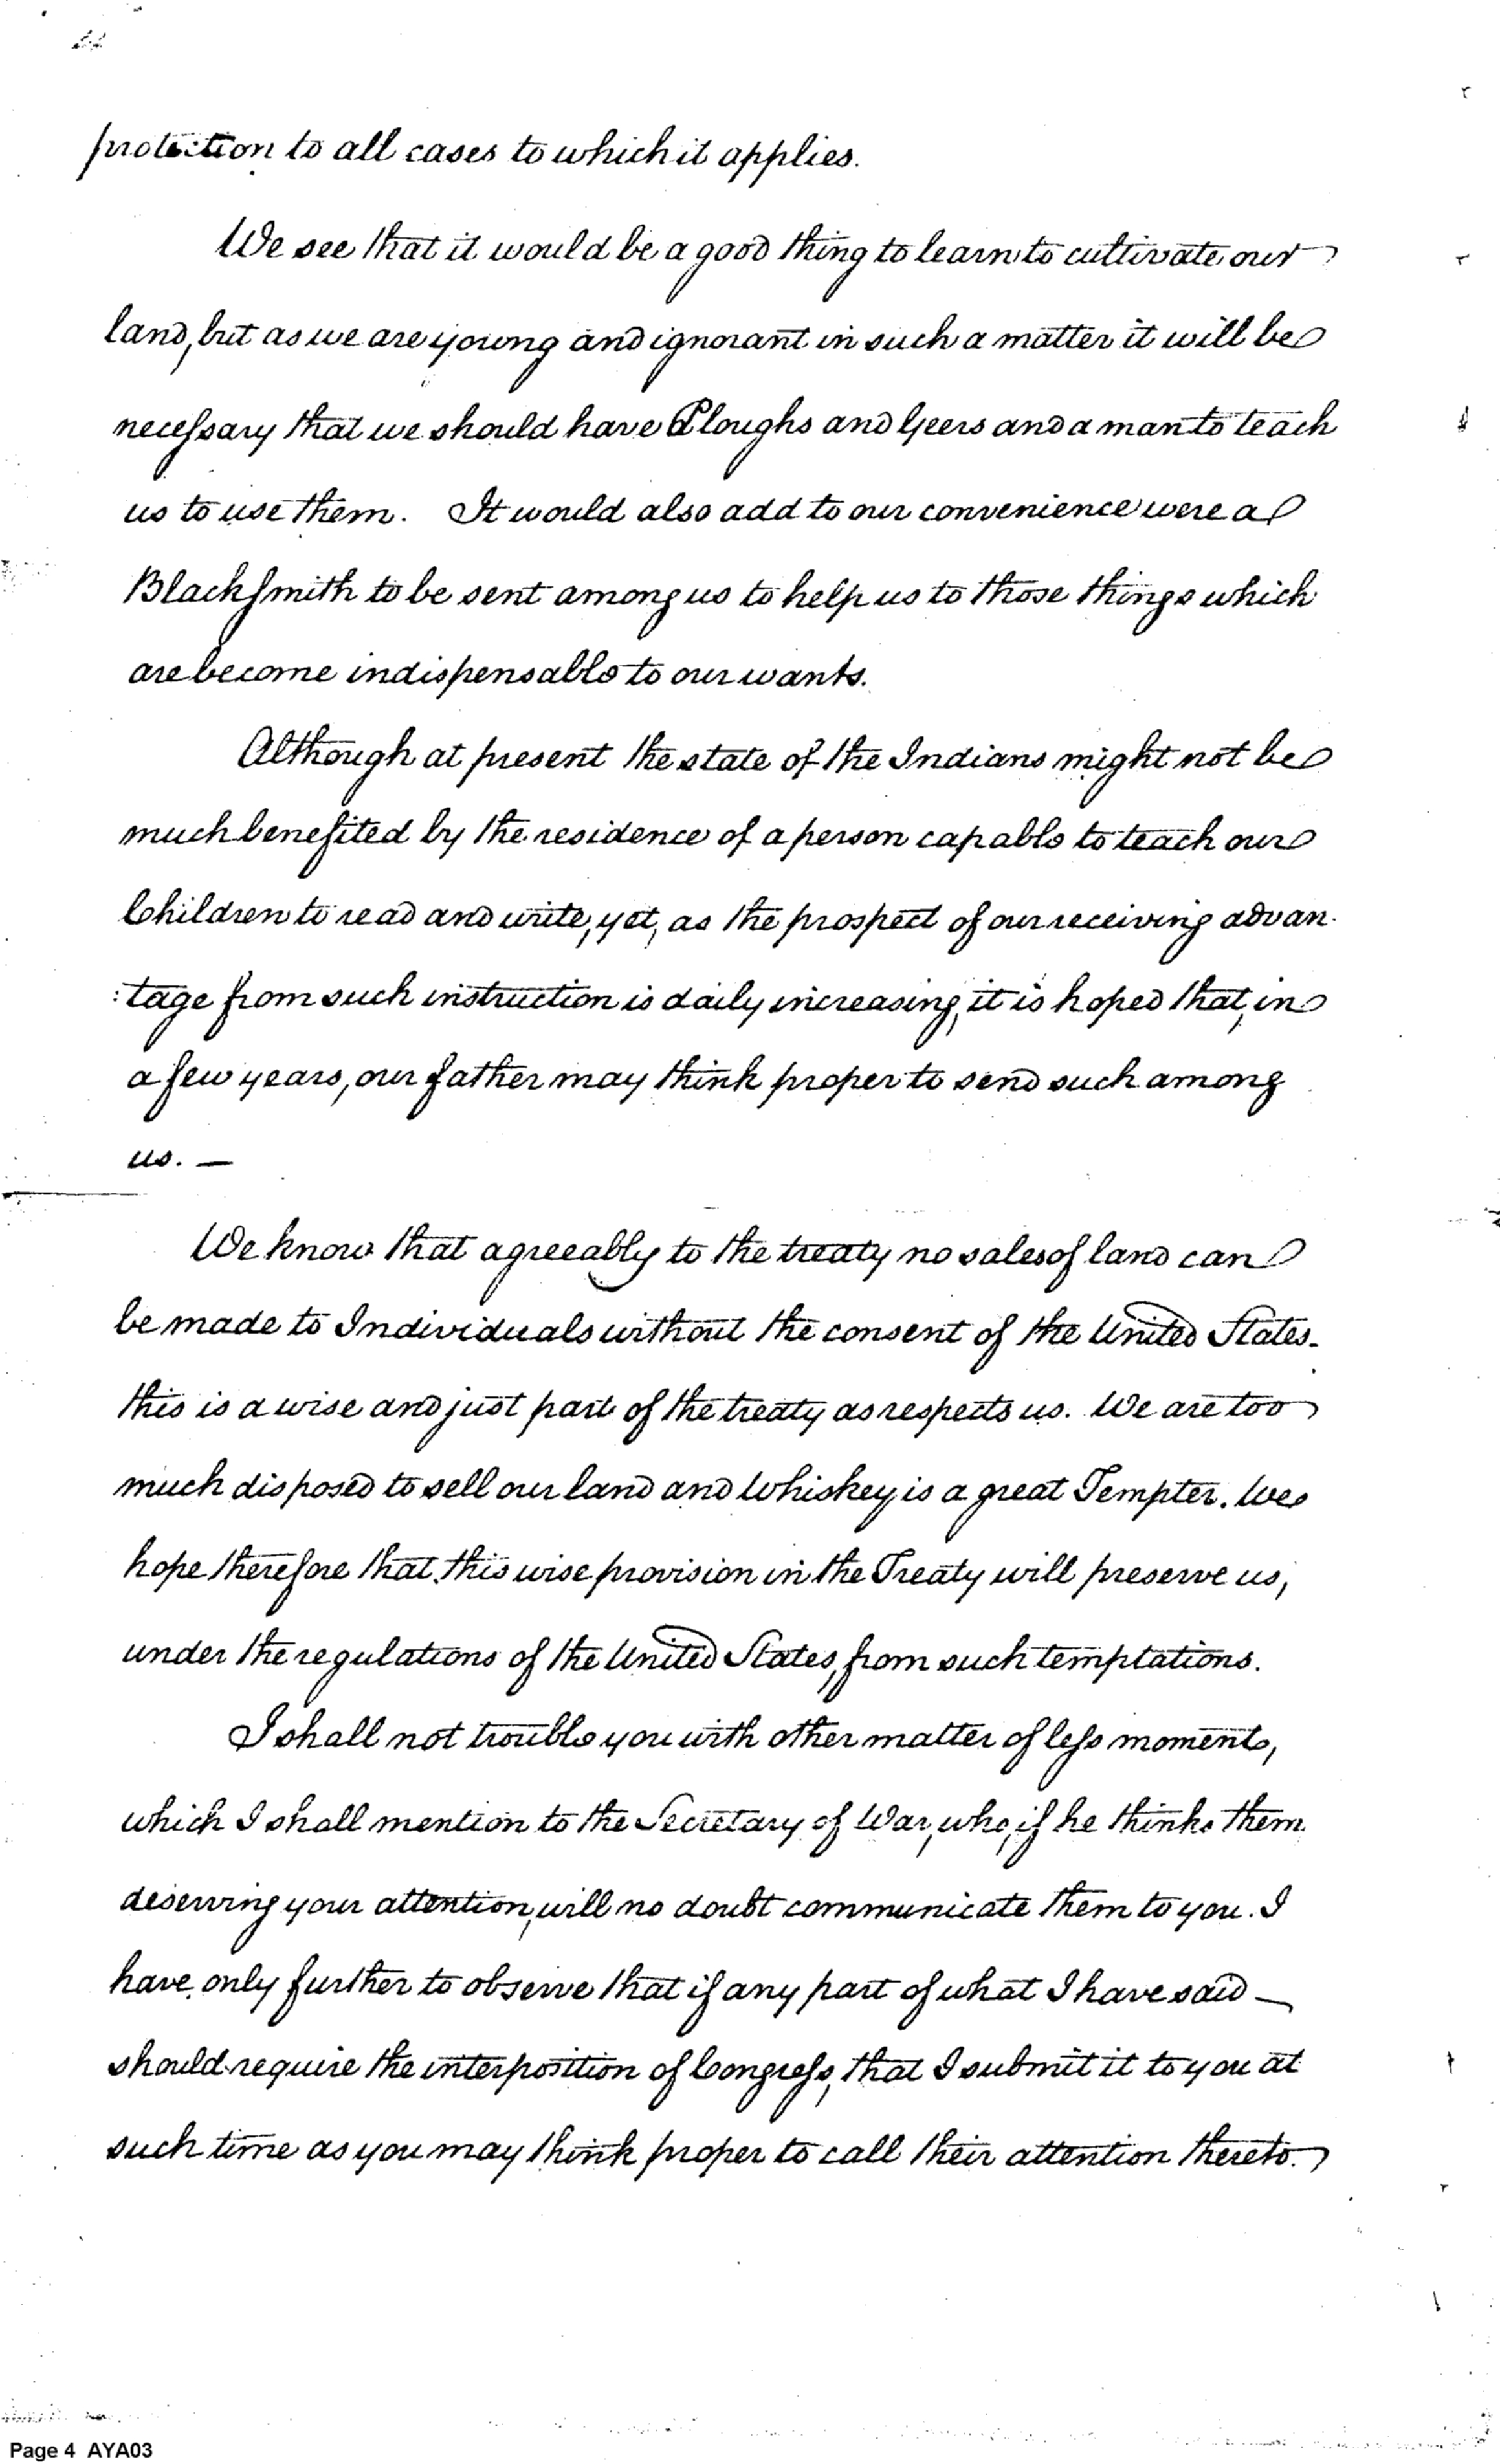 protection to all cases to which it applies.
We see that it would be a good thing to learn to cultivate our
land, but as we are young and ignorant in such a matter it will be
necessary that we should have Ploughs and Geers and a man to teach
us to use them. It would also add to our convenience were a
BlackSmith to be sent among us to help us to those things which
are become indispensable to our wants.
Although at present the state of the Indians might not be
much benefited by the residence of a person capable to teach our
Children to read and write, yet, as the prospect of our receiving advan-
:tage from such instruction is daily increasing, it is hoped that, in
a few years, our father may think proper to send such among
us. —
We know that agreeably to the treaty no sales of land can
be made to Individuals without the consent of the United States.
this is a wise and just part of the treaty as respects us. We are too
much disposed to sell our land and Whiskey is a great Tempter. We
hope therefore that this wise provision in the Treaty will preserve us,
under the regulations of the United States, from such temptations.
I shall not trouble you with other matter of less moments,
which I shall mention to the Secretary of War, who, if he thinks them
deserving your attention, will no doubt communicate them to you. I
have only further to observe that if any part of what I have said —
should require the interposition of Congress, that I submit it to you at
such time as you may think proper to call their attention thereto.
Page 4 AYA03